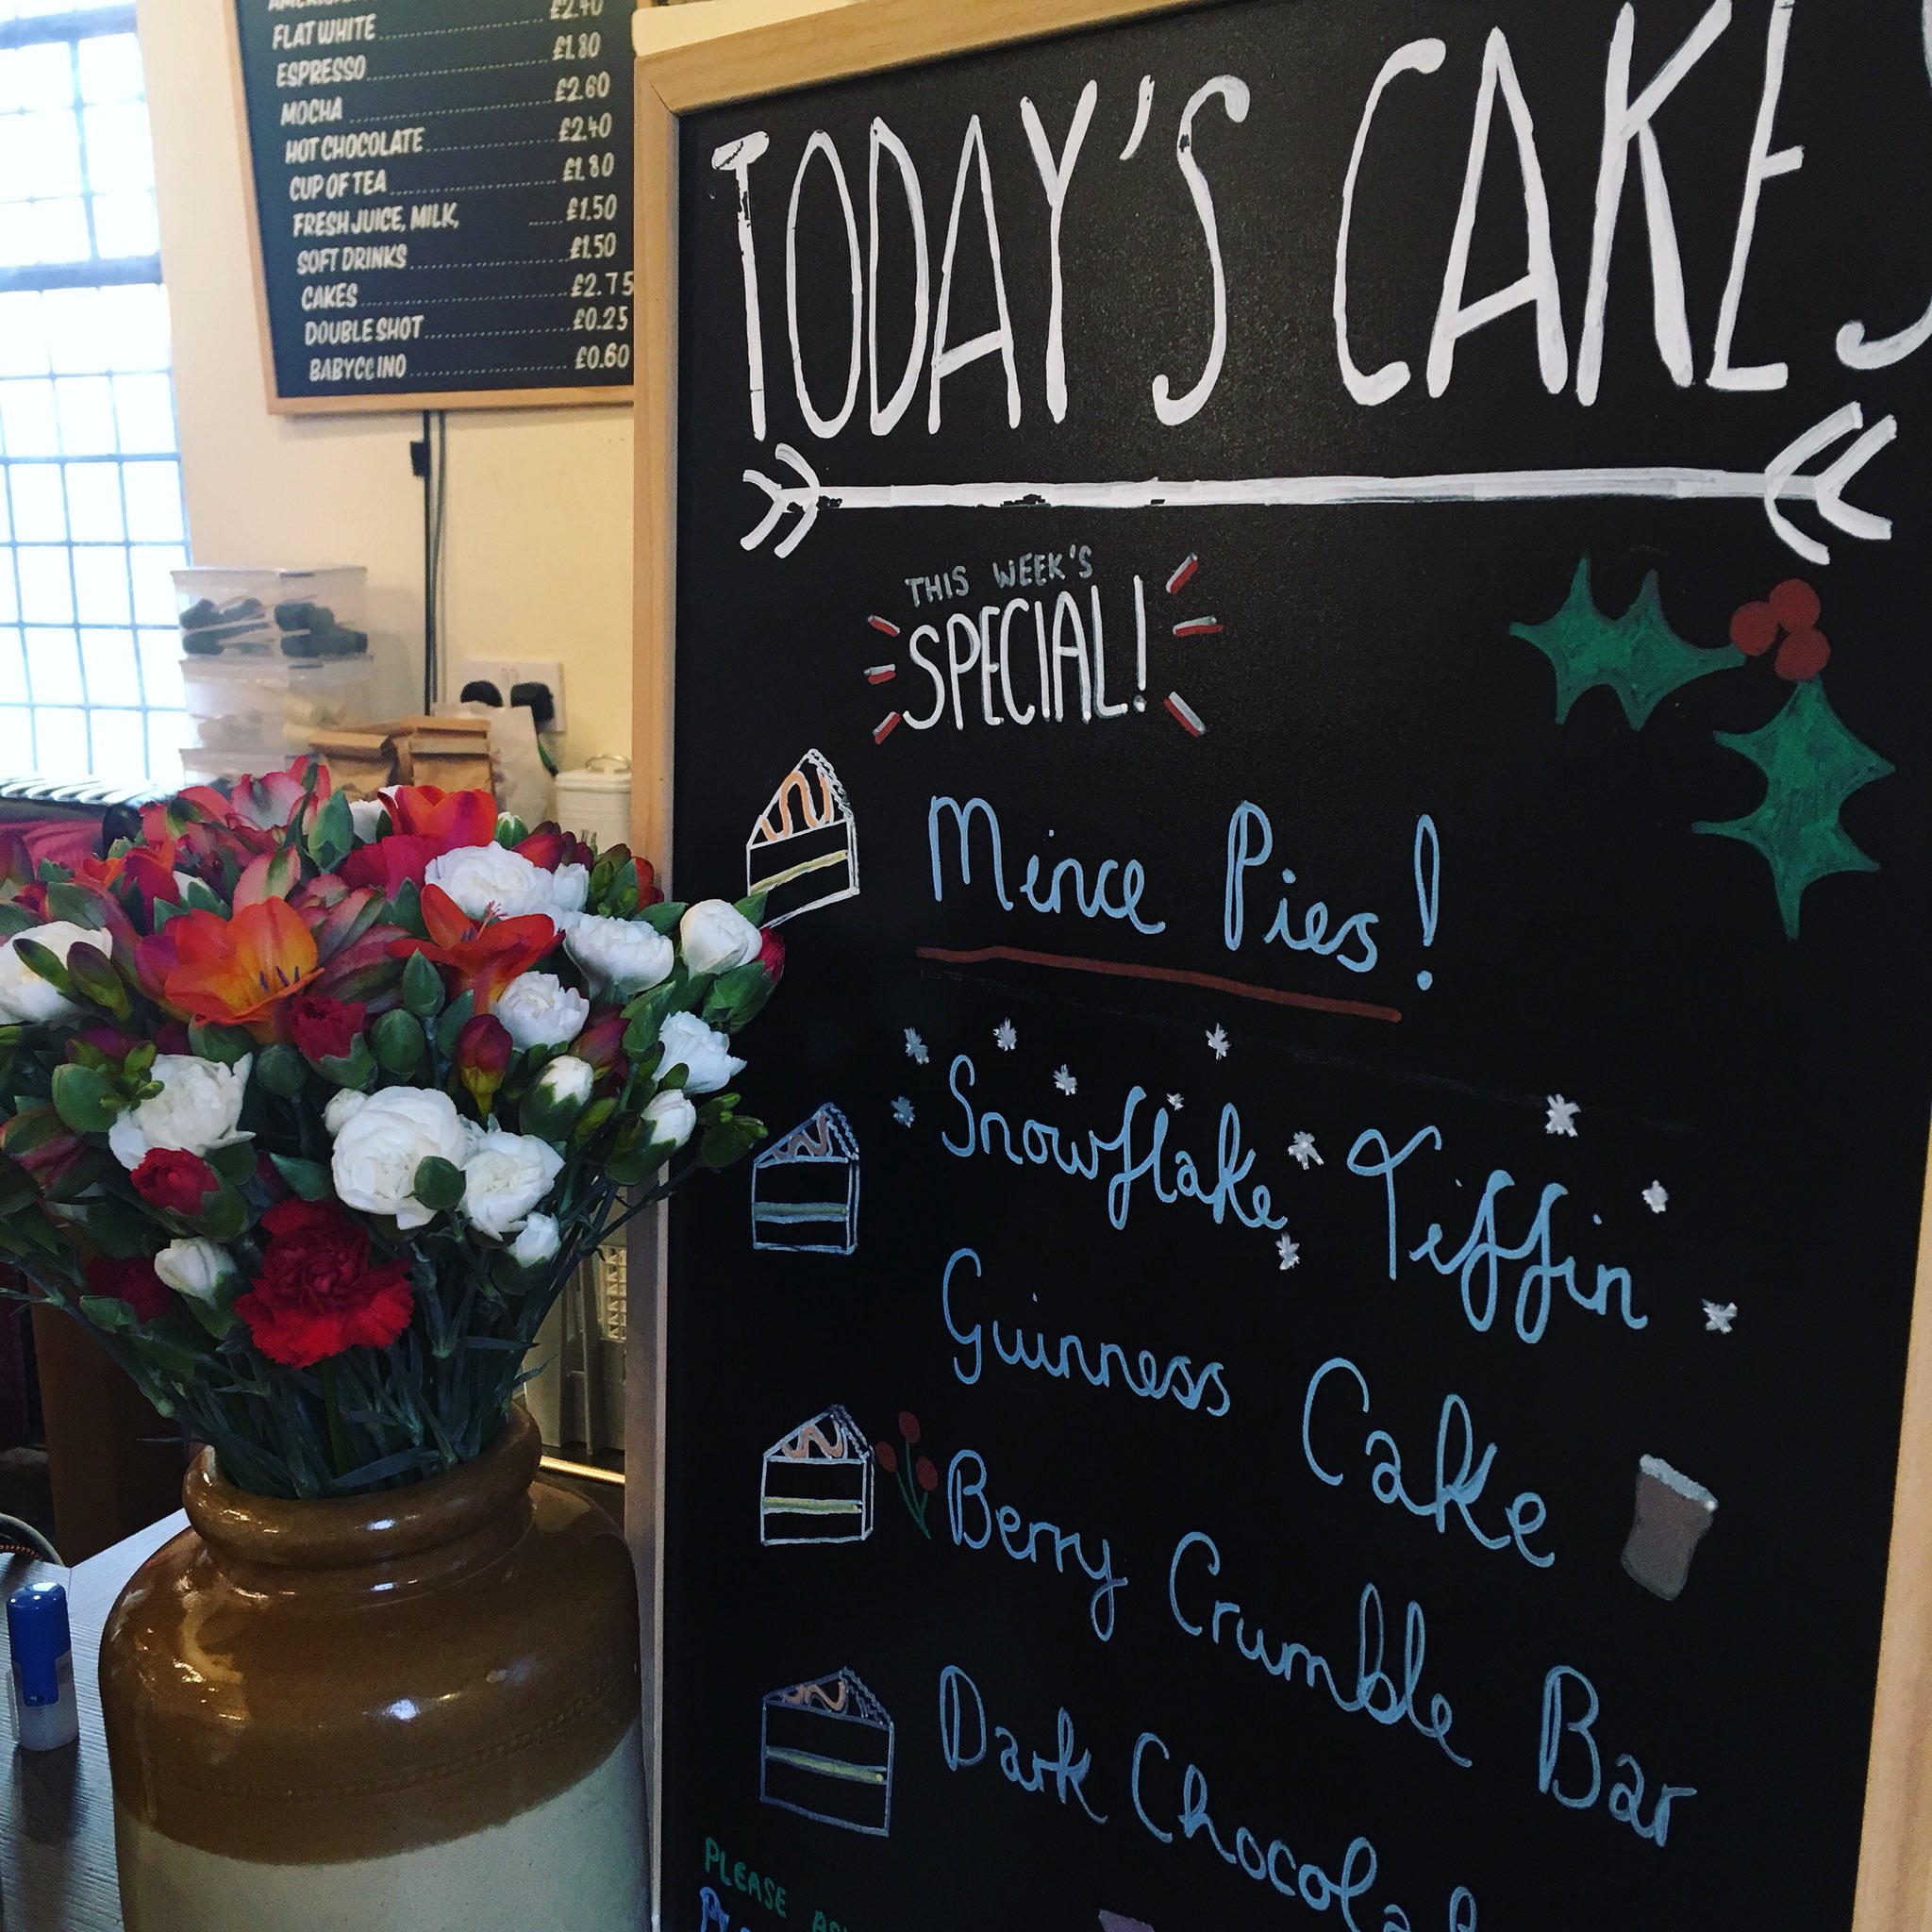 FLAT WHITE £2.40
ESPRESSO £1.80
MOCHA £2.60
HOT CHOCOLATE £2.40
CUP OF TEA £1.80
FRESH JUICE, MILK, £1.50
SOFT DRINKS £1.50
CAKES £2.75
DOUBLE SHOT £0.25
BABYCCINO £0.60
TODAY'S CAKES
THIS WEEK'S
SPECIAL!
Mince Pies!
Snowflake Tiffin
Guinness Cake
Berry Crumble Bar
Dark Chocolat
PLEASE